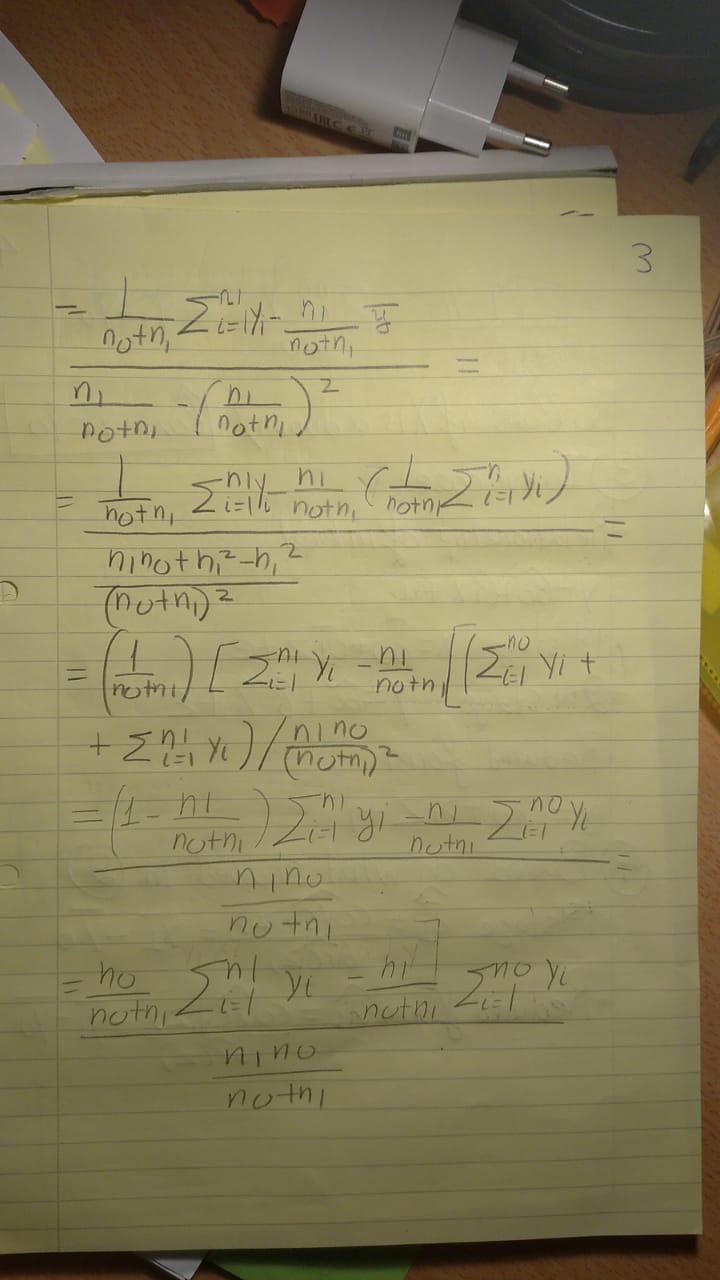 3
= \frac{\frac{1}{n_0+n_1} \sum_{i=1}^{n_1} y_i - \frac{n_1}{n_0+n_1} \bar{y}}{\frac{n_1}{n_0+n_1} - \left(\frac{n_1}{n_0+n_1}\right)^2} =
= \frac{\frac{1}{n_0+n_1} \sum_{i=1}^{n_1} y_i - \frac{n_1}{n_0+n_1} \left(\frac{1}{n_0+n_1} \sum_{i=1}^{n} y_i\right)}{\frac{n_1 n_0 + n_1^2 - n_1^2}{(n_0+n_1)^2}} =
= \left(\frac{1}{n_0+n_1}\right) [ \sum_{i=1}^{n_1} y_i - \frac{n_1}{n_0+n_1} [ ( \sum_{i=1}^{n_0} y_i +
+ \sum_{i=1}^{n_1} y_i ) / \frac{n_1 n_0}{(n_0+n_1)^2}
= \frac{\left(1 - \frac{n_1}{n_0+n_1}\right) \sum_{i=1}^{n_1} y_i - \frac{n_1}{n_0+n_1} \sum_{i=1}^{n_0} y_i}{\frac{n_1 n_0}{n_0+n_1}} =
= \frac{\frac{n_0}{n_0+n_1} \sum_{i=1}^{n_1} y_i - \frac{n_1}{n_0+n_1} \sum_{i=1}^{n_0} y_i}{\frac{n_1 n_0}{n_0+n_1}}